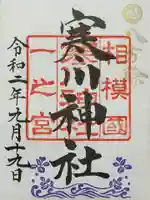 八方除
寒川神社
相模國
一之宮
令和二年九月十九日